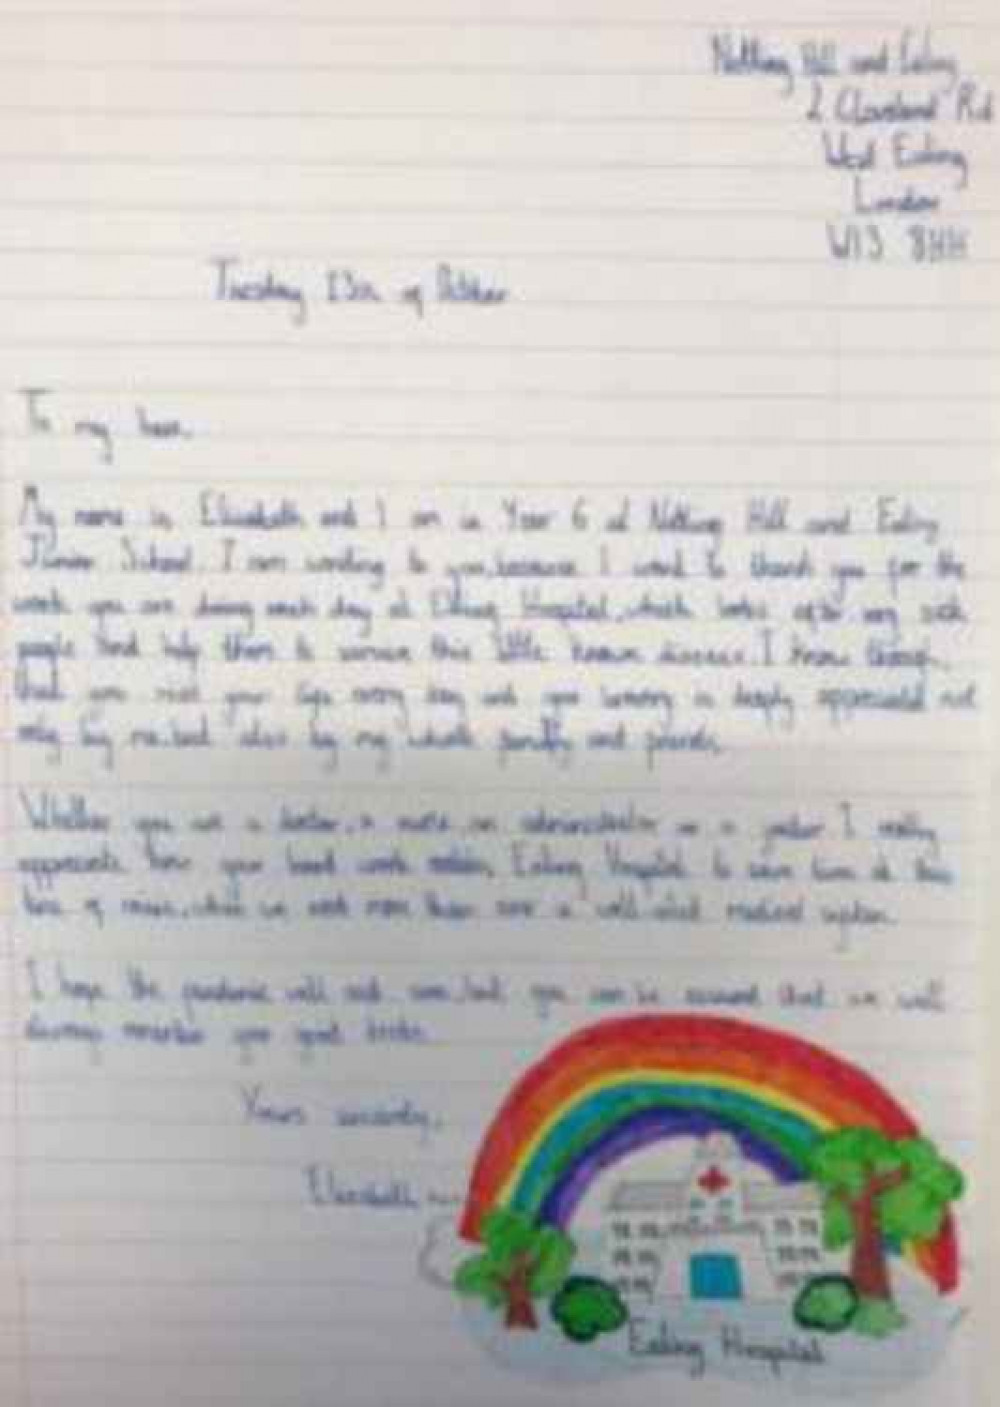 Notting Hill and Ealing
2 Cleveland Rd
West Ealing
London
W13 8HH
Tuesday 13th of October
To my hero,
My name is Elizabeth and I am in Year 6 at Notting Hill and Ealing
Junior School. I am writing to you, because I want to thank you for the
work you are doing each day at Ealing Hospital, which looks after very sick
people and help them to survive this little known disease. I know though,
that you risk your life every day and you bravery is deeply appreciated not
only by me, but also by my whole family and friends.
Whether you are a doctor, a nurse, an administrator or a porter I really
appreciate how your hard work enables Ealing Hospital to save lives at this
time of crisis, when we need more than ever a well-run medical system.
I hope the pandemic will end soon, but you can be assured that we will
always remember your good deeds.
Yours sincerely,
Elizabeth
Ealing Hospital